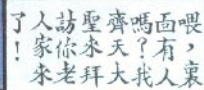 喂，裏
面有人
嗎？我
齊天大
聖來拜
訪你老
人家來
了！